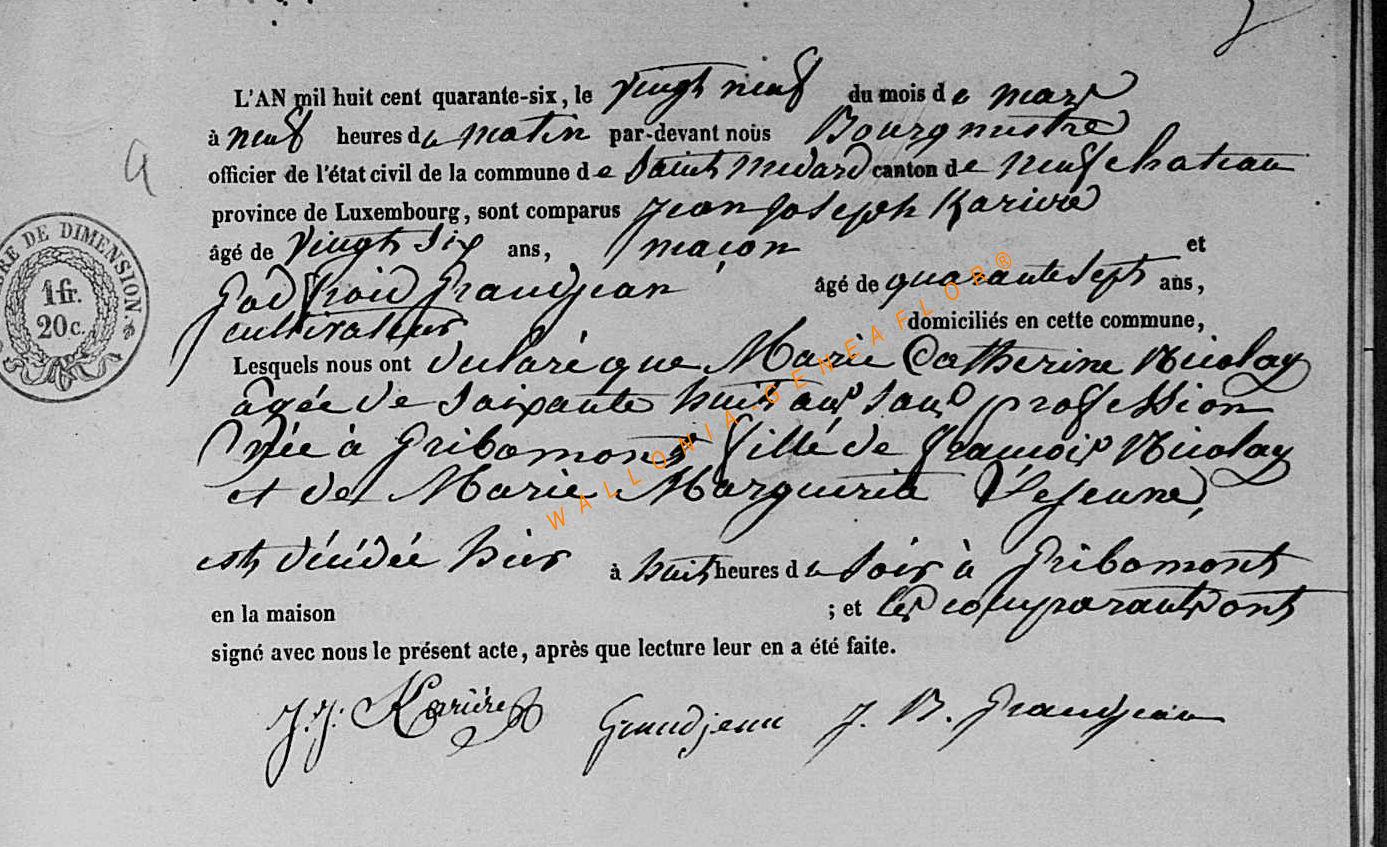 L'AN mil huit cent quarante-six, le vingt neuf du mois de mars
à neuf heures du matin par-devant nous Bourgmestre
officier de l'état civil de la commune de Saint Médard canton de Neufchateau
province de Luxembourg, sont comparus Jean Joseph Karière
âgé de vingt six ans, maçon et
Godfroid Grandjean âgé de quarante sept ans,
cultivateur domiciliés en cette commune,
Lesquels nous ont déclaré que Marie Catherine Nicolay
agée de soixante huit ans sans profession
née à Gribomont fille de François Nicolay
et de Marie Marguerite Lejeune,
est décédée hier à huit heures du soir à Gribomont
en la maison ; et les comparants ont
signé avec nous le présent acte, après que lecture leur en a été faite.
J. J. Karière Grandjean J. B. Grandjean
TIMBRE DE DIMENSION.
1 fr.
20 c.
WALLONIA-GENEAFLOR®